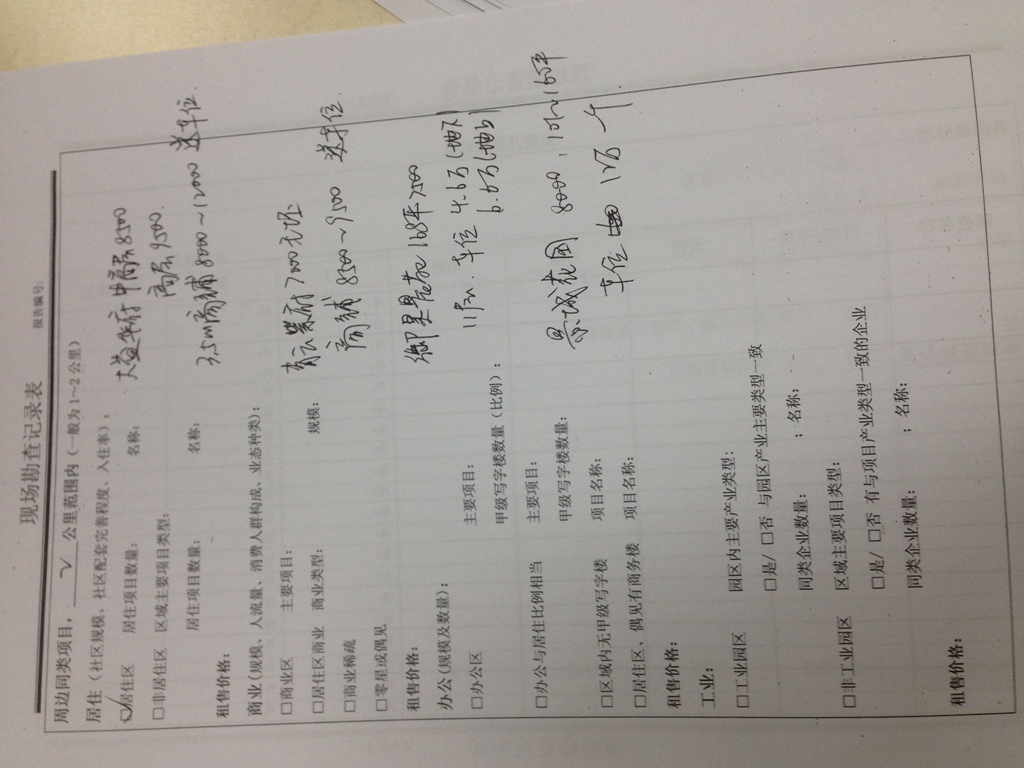 现场勘查记录表
报告编号:
周边同类项目, 2 公里范围内(一般为1~2公里)
居住(社区规模、社区配套完善程度、入住率):
☑居住区 居住项目数量: 名称: 中高层8500
□非居住区 区域主要项目类型: 高层9500
居住项目数量: 名称: 3.5m商铺8000~12000 送车位
租售价格:
商业(规模、人流量、消费人群构成、业态种类):
□商业区 主要项目: 府7200元
□居住区商业 商业类型: 规模: 商铺 8500~9500 送车位
□商业稀疏
□零星或偶见
租售价格: 御 168平 7500
办公(规模及数量): 车位 4.6万(地下)
□办公区 主要项目: 6.6万(地
甲级写字楼数量(比例):
□办公与居住比例相当 主要项目: 景城花园 8000,
甲级写字楼数量:
□区域内无甲级写字楼 项目名称: 车位 12万 个
□居住区、偶见有商务楼 项目名称:
租售价格:
工业:
□工业园区 园区内主要产业类型:
□是/□否 与园区产业主要类型一致
同类企业数量: ;名称:
□非工业园区 区域主要项目类型:
□是/□否 有与项目产业类型一致的企业
同类企业数量: ;名称:
租售价格: